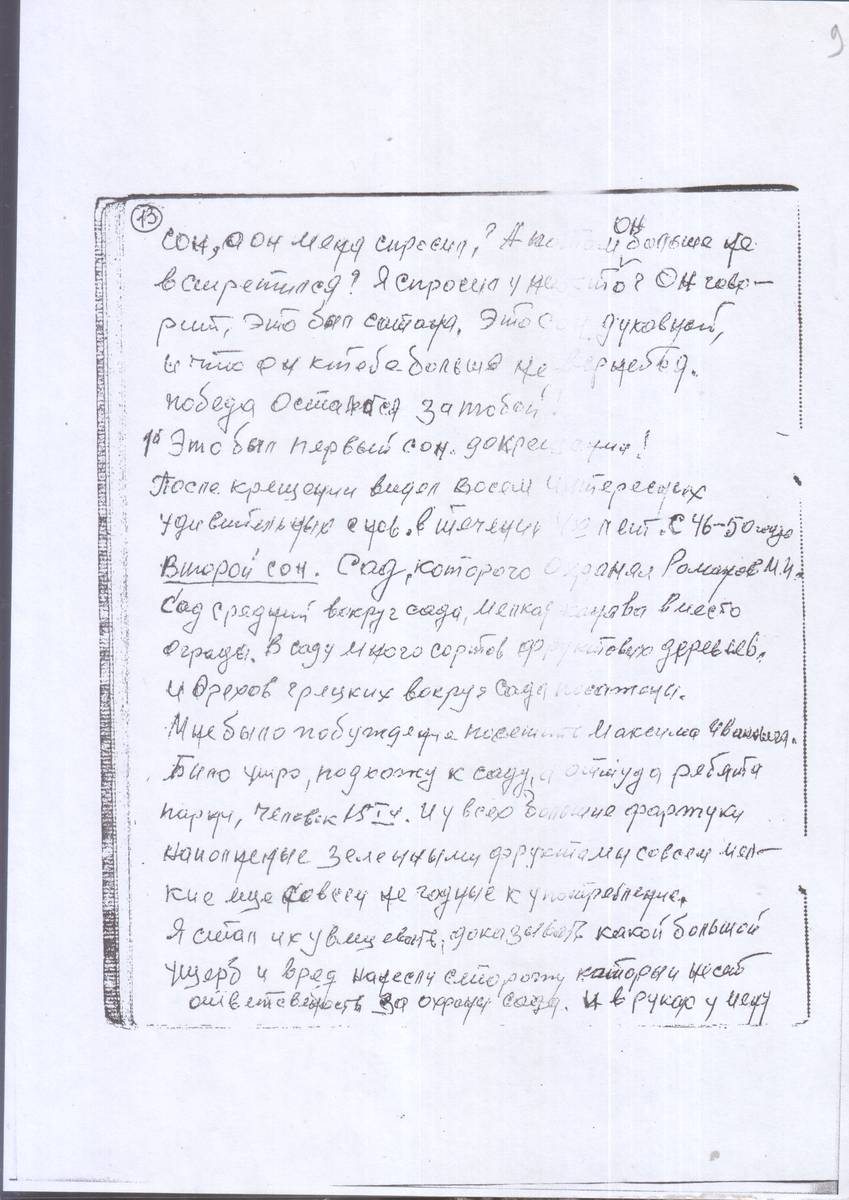 9
13
сон, а он меня спросил,? А потом он больше не
встретился? Я спросил у него кто? Он гово-
рит, это был сатана. Это сон духовный,
и что он к тебе больше не вернется.
победа остается за тобой!
1й Это был первый сон. до крещения!
После крещении видел восем интересных
удивительных снов. в течении лет. С 46-50 году
Второй сон. Сад, которого охранял Романов М.И.
Сад средний вокруг сада, мелкая канава вместо
ограды. В саду много сортов фруктовых деревьев.
и Орехов грецких вокруг сада посажены.
Мне было побуждение посетить Максима Иваныча.
Было утро, подхожу к саду, а оттуда ребята
парни, человек 15ть. И у всех большие фартуки
наполненые зелеными фруктамы совсем мел-
кие еще совсем не годные к употребление.
Я стал их увещевать, доказывать какой большой
ущерб и вред нанесли сторожу который несет
ответственость за охрану сада. И в руках у меня